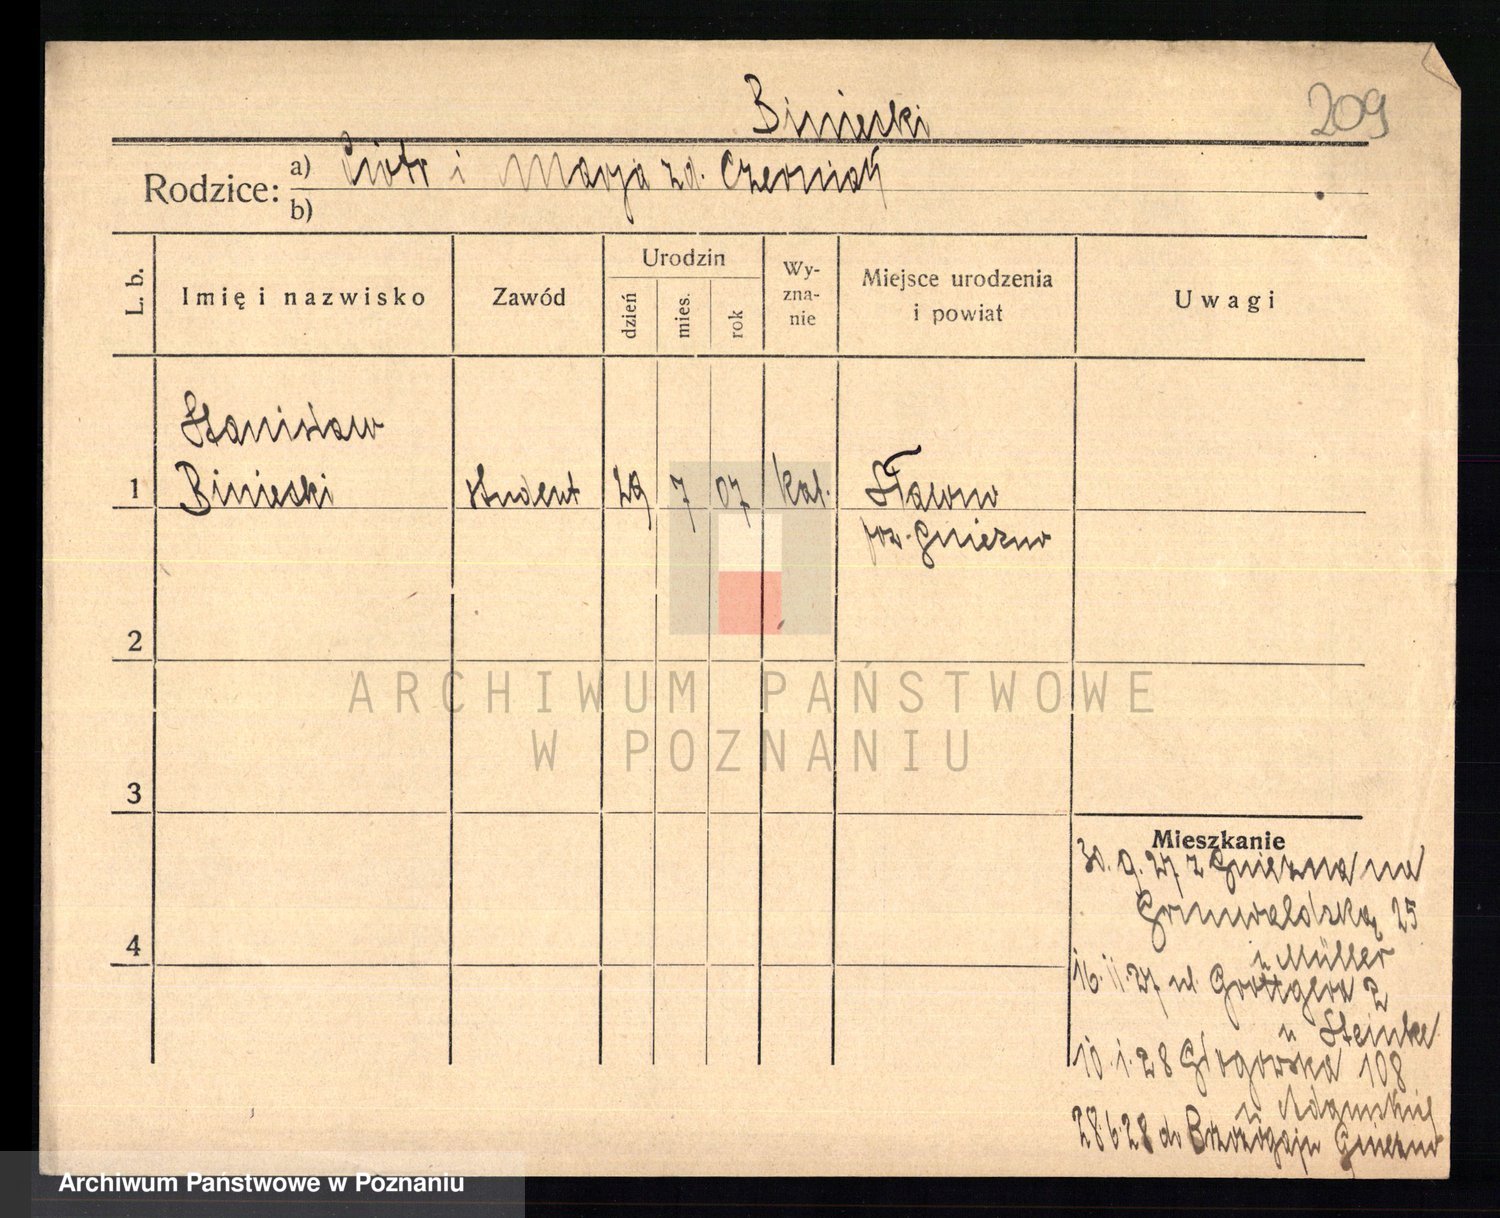 Biniecki
209
Rodzice: a) Piotr i Marja zd. Czerniak
b)
L. b.
Imię i nazwisko
Zawód
Urodzin
dzień
mies.
rok
Wy-
zna-
nie
Miejsce urodzenia
i powiat
Uwagi
Stanisław
1 Biniecki student 29 7 07 kat. Sławno
pow. Gniezno
2
ARCHIWUM PAŃSTWOWE
W POZNANIU
3
Mieszkanie
30. 9. 27 z Gniezna na
Grunwaldzką 25
u Müller
4
16. 11. 27 ul. Grottgera 2
u Steinke
10. 1. 28 Głogowska 108
u Adamskiej
28. 6. 28 do Brzozogaju Gniezno
Archiwum Państwowe w Poznaniu